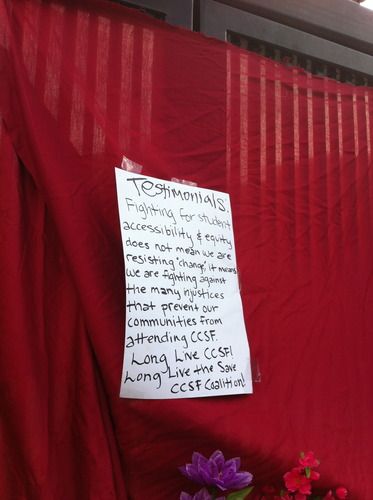 Testimonials:
Fighting for student
accessibility & equity
does not mean we are
resisting "change", it means
we are fighting against
the many injustices
that prevent our
communities from
attending CCSF.
Long Live CCSF!
Long Live the Save
CCSF Coalition!